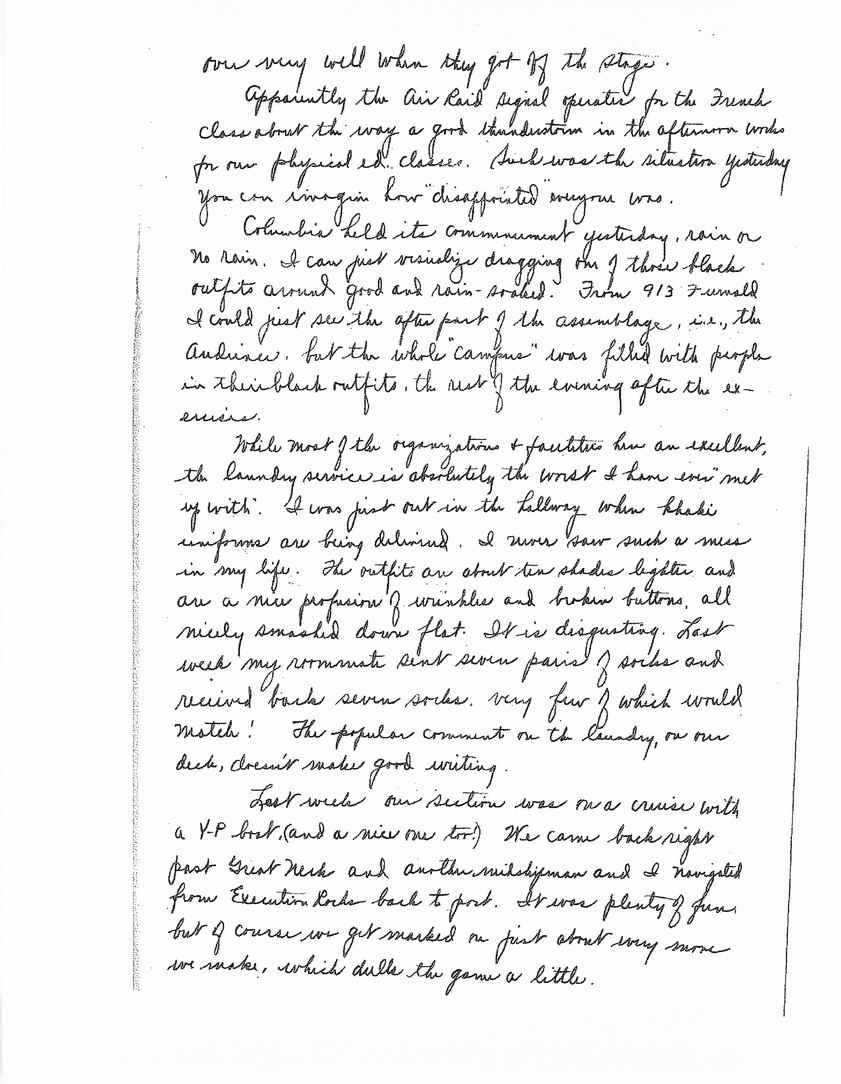 over very well when they got off the stage.
Apparently the Air Raid signal operates for the French
class about the way a good thunderstorm in the afternoon works
for our physical ed. classes. Such was the situation yesterday
You can imagin how "disappointed" everyone was.
Columbia held its commencement yesterday, rain or
no rain. I can just visualize dragging one of those black
outfits around good and rain-soaked. From 913 Furnald
I could just see the after part of the assemblage, i.e., the
audience, but the whole "campus" was filled with people
in their black outfits, the rest of the evening after the ex-
ercise.
While most of the organizations & facilities here are excellent,
the laundry service is absolutely the worst I have ever "met
up with". I was just out in the hallway when khaki
uniforms are being delivered. I never saw such a mess
in my life. The outfits are about ten shades lighter and
are a nice profusion of wrinkles and broken buttons, all
nicely smashed down flat. It is disgusting. Last
week my roommate sent seven pairs of socks and
received back seven socks, very few of which would
match! The popular comment on the laundry, on our
deck, doesn't make good writing.
Last week our section was on a cruise with
a Y-P boat, (and a nice one too!) We came back right
past Great Neck and another midshipman and I navigated
from Execution Rocks back to port. It was plenty of fun,
but of course we get marked on just about every move
we make, which dulls the game a little.